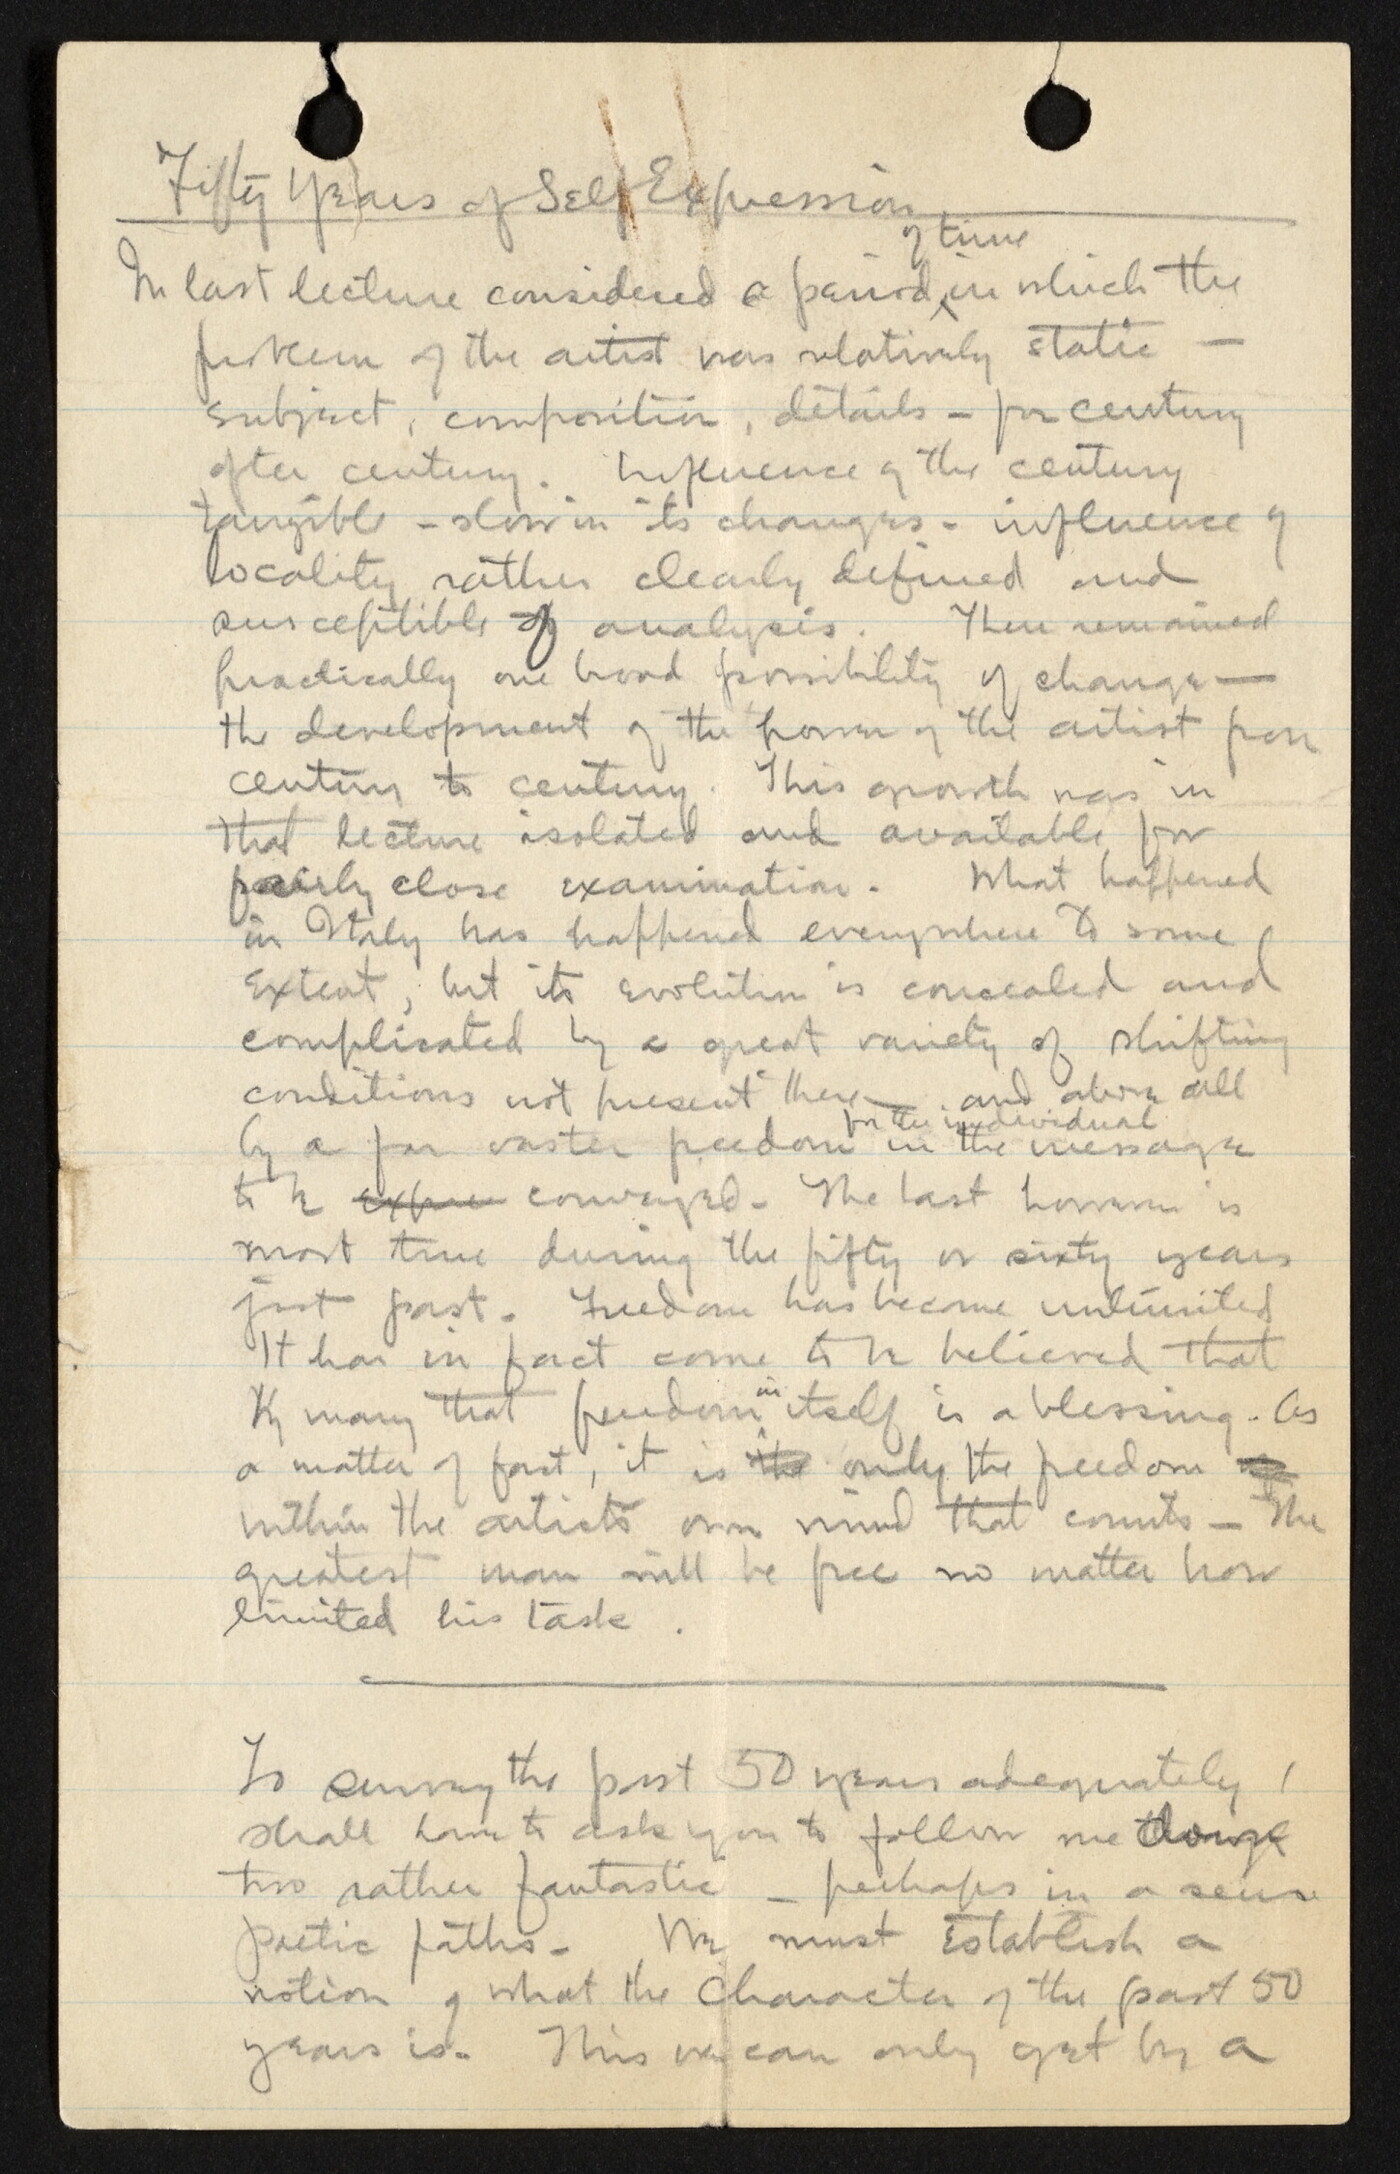 Fifty Years of Self Expression
of time
In last lecture considered a period in which the
problem of the artist was relatively static —
subject, composition, details — for century
after century. Influence of the century
tangible — slow in its changes — influence of
locality rather clearly defined and
susceptible of analysis. There remained
practically one broad possibility of change —
the development of the power of the artist from
century to century. This growth was in
that lecture isolated and available for
fairly close examination. What happened
in Italy has happened everywhere to some
extent, but its evolution is concealed and
complicated by a great variety of shifting
conditions not present there — and above all
for the individual
by a far vaster freedom in the message
to be expres conveyed. The last however is
most true during the fifty or sixty years
just past. Freedom has become unlimited
It has in fact come to be believed that
by many that freedom in itself is a blessing. As
a matter of fact, it is the only the freedom
within the artists own mind that counts — The
greatest man will be free no matter how
limited his task.
To survey the past 50 years adequately I
shall have to ask you to follow me through
two rather fantastic — perhaps in a sense
poetic paths. We must establish a
notion of what the character of the past 50
years is. This we can only get by a